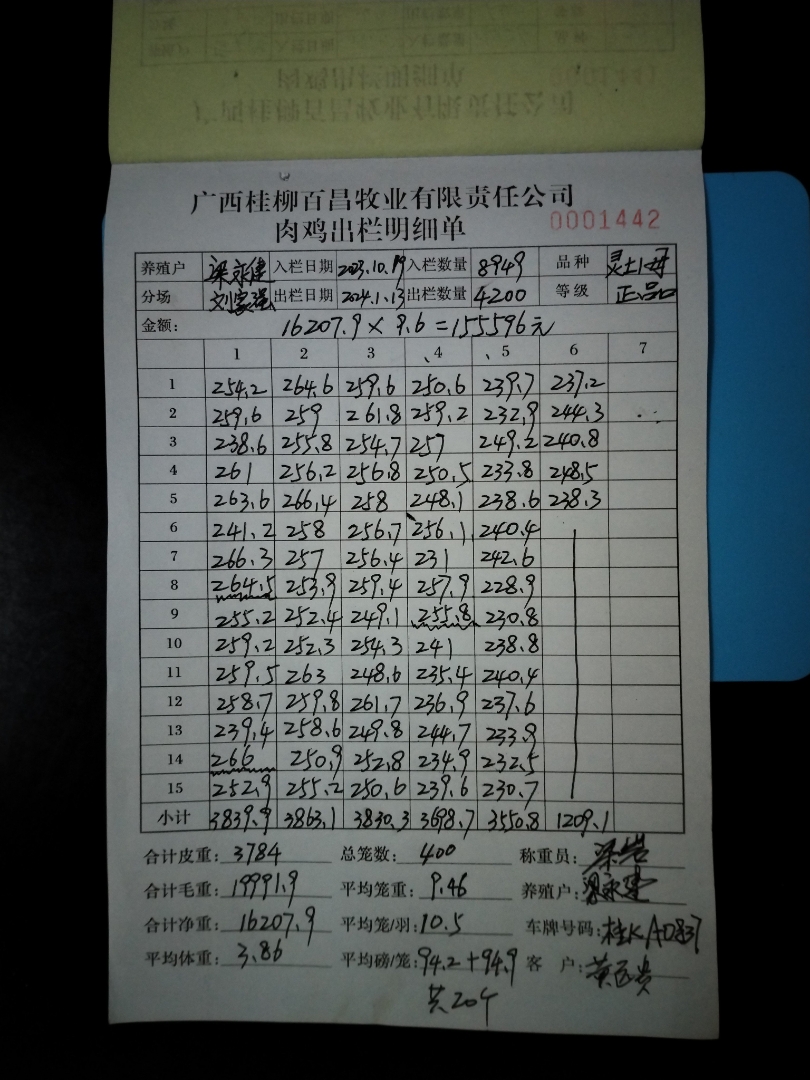 广西桂柳百昌牧业有限责任公司
肉鸡出栏明细单 0001442
养殖户 梁永建 入栏日期 2023.10.19 入栏数量 8949 品种 灵土1号
分场 刘家强 出栏日期 2024.1.13 出栏数量 4200 等级 正品
金额: 16207.9 × 9.6 = 155596元
1 2 3 4 5 6 7
1 254.2 264.6 259.6 250.6 239.7 237.2
2 259.6 259 261.8 259.2 232.9 244.3
3 238.6 255.8 254.7 257 249.2 240.8
4 261 256.2 256.8 250.5 233.8 248.5
5 263.6 266.4 258 248.1 238.6 238.3
6 241.2 258 256.7 256.1 240.4
7 266.3 257 256.4 231 242.6
8 264.5 253.9 259.4 257.9 228.9
9 255.2 252.4 249.1 255.8 230.8
10 259.2 252.3 254.3 241 238.8
11 259.5 263 248.6 235.4 240.4
12 258.7 259.8 261.7 236.9 237.6
13 239.4 258.6 249.8 244.7 233.9
14 266 250.9 252.8 234.9 232.5
15 252.9 255.2 250.6 239.6 230.7
小计 3839.9 3863.1 3830.3 3698.7 3550.8 1209.1
合计皮重: 3784 总笼数: 400 称重员:
合计毛重: 19991.9 平均笼重: 9.46 养殖户: 梁永建
合计净重: 16207.9 平均笼/羽: 10.5 车牌号码: 桂K AD837
平均体重: 3.86 平均磅/笼: 94.2+94.9 客户:
共20个